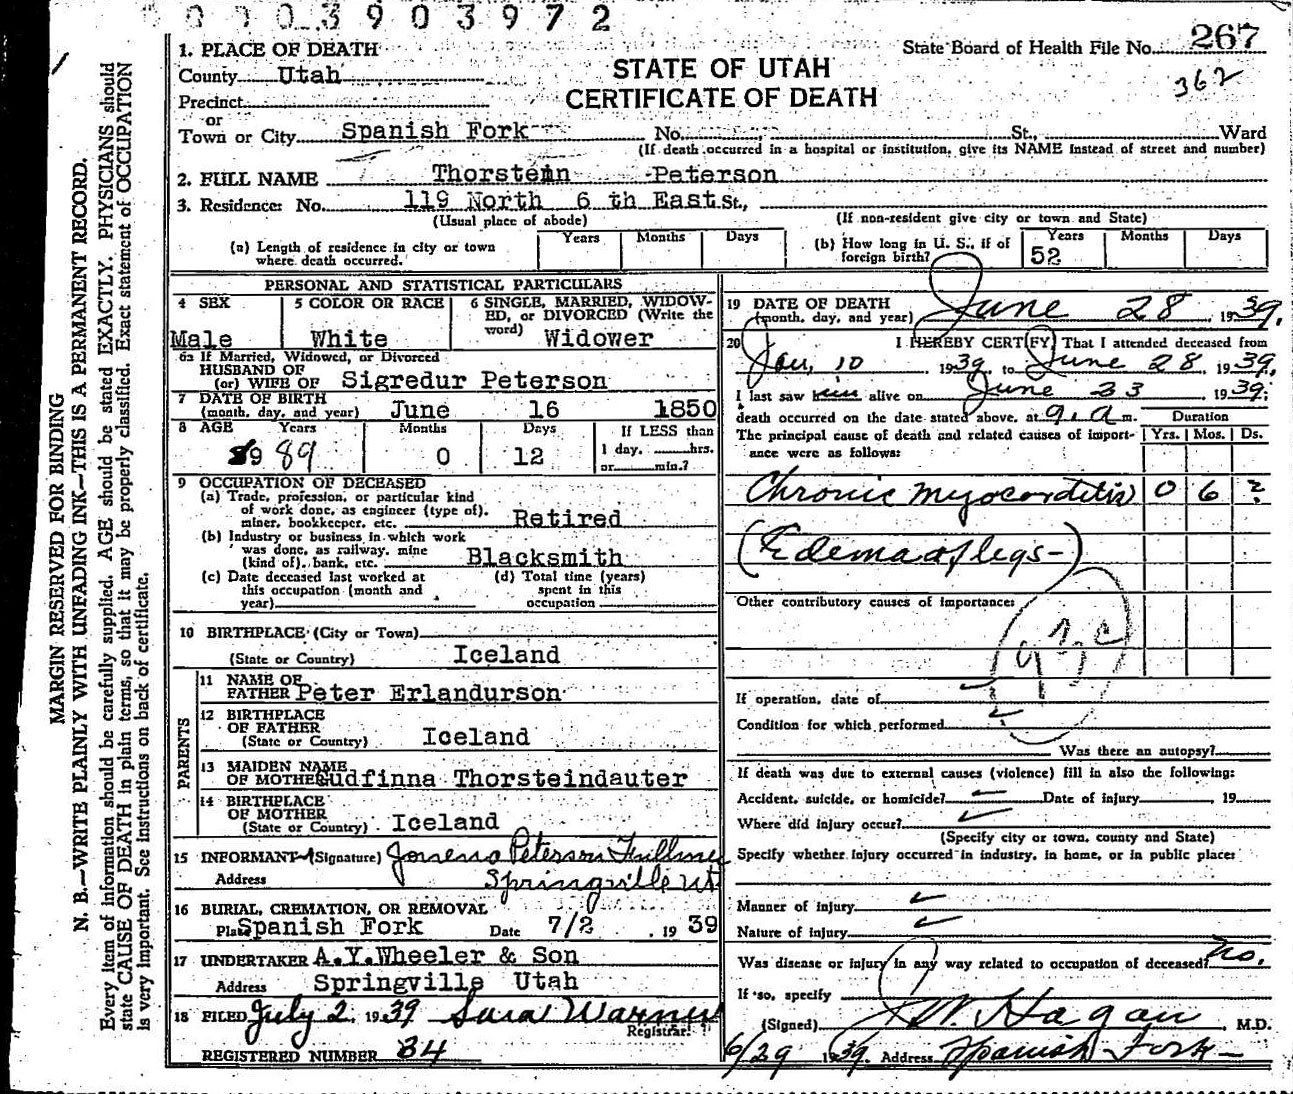 0003903972
1. PLACE OF DEATH
State Board of Health File No. 267
County Utah
STATE OF UTAH
362
Precinct
CERTIFICATE OF DEATH
or
Town or City Spanish Fork No. St., Ward
(If death occurred in a hospital or institution, give its NAME instead of street and number)
2. FULL NAME Thorstein Peterson
3. Residence: No. 119 North 6 th East St.,
(Usual place of abode) (If non-resident give city or town and State)
(a) Length of residence in city or town where death occurred. Years Months Days
(b) How long in U. S., if of foreign birth? Years 52 Months Days
PERSONAL AND STATISTICAL PARTICULARS
4 SEX Male
5 COLOR OR RACE White
6 SINGLE, MARRIED, WIDOW-
ED, or DIVORCED (Write the
word) Widower
6a If Married, Widowed, or Divorced
HUSBAND OF
(or) WIFE OF Sigredur Peterson
7 DATE OF BIRTH
(month, day, and year) June 16 1850
8 AGE Years Months Days If LESS than
89 0 12 1 day, hrs.
or min.?
9 OCCUPATION OF DECEASED
(a) Trade, profession, or particular kind
of work done, as engineer (type of),
miner, bookkeeper, etc. Retired
(b) Industry or business in which work
was done, as railway, mine
(kind of), bank, etc. Blacksmith
(c) Date deceased last worked at
this occupation (month and
year)
(d) Total time (years)
spent in this
occupation
10 BIRTHPLACE (City or Town)
(State or Country) Iceland
PARENTS
11 NAME OF
FATHER Peter Erlandurson
12 BIRTHPLACE
OF FATHER
(State or Country) Iceland
13 MAIDEN NAME
OF MOTHER Gudfinna Thorsteindauter
14 BIRTHPLACE
OF MOTHER
(State or Country) Iceland
15 INFORMANT (Signature) Peterson Fullmer
Address Springville Ut
16 BURIAL, CREMATION, OR REMOVAL
Place Spanish Fork Date 7/2, 19 39
17 UNDERTAKER A.Y.Wheeler & Son
Address Springville Utah
18 FILED July 2, 1939 Sara Warner
Registrar
REGISTERED NUMBER 34
19 DATE OF DEATH
(month, day, and year) June 28, 1939.
20 I HEREBY CERTIFY, That I attended deceased from
Jan, 10, 1939, to June 28, 1939.
I last saw him alive on June 23, 1939;
death occurred on the date stated above, at 9. a m. Duration
The principal cause of death and related causes of import-
ance were as follows: Yrs. Mos. Ds.
Chronic Myocarditis 0 6 ?
(Edema of legs-)
Other contributory causes of importance:
93c
If operation, date of
Condition for which performed
Was there an autopsy?
If death was due to external causes (violence) fill in also the following:
Accident, suicide, or homicide? Date of injury, 19
Where did injury occur?
(Specify city or town, county and State)
Specify whether injury occurred in industry, in home, or in public place:
Manner of injury
Nature of injury
Was disease or injury in any way related to occupation of deceased? No.
If so, specify
(Signed) Hagan, M.D.
6/29 1939. Address Spanish Fork
MARGIN RESERVED FOR BINDING
N. B.—WRITE PLAINLY WITH UNFADING INK—THIS IS A PERMANENT RECORD.
Every item of information should be carefully supplied. AGE should be stated EXACTLY. PHYSICIANS should
state CAUSE OF DEATH in plain terms, so that it may be properly classified. Exact statement of OCCUPATION
is very important. See instructions on back of certificate.